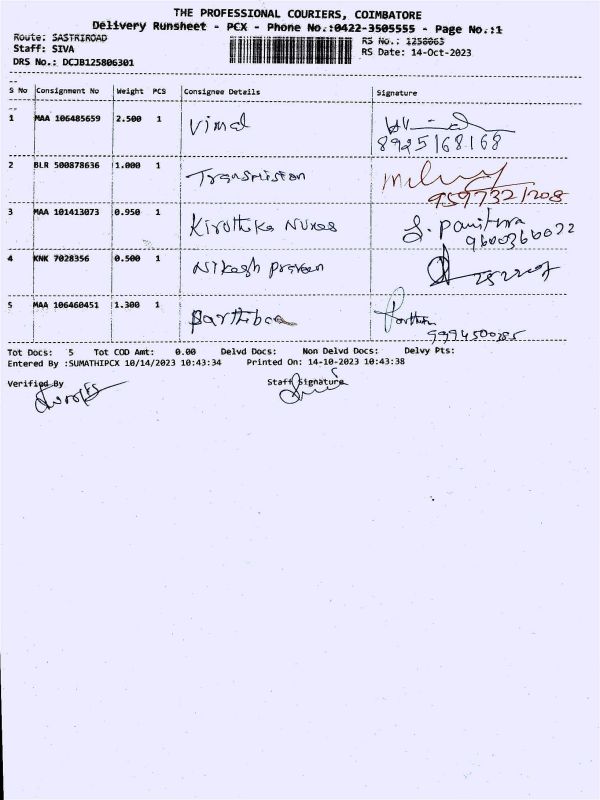 THE PROFESSIONAL COURIERS, COIMBATORE
Delivery Runsheet - PCX - Phone No.:0422-3505555 - Page No.:1
Route: SASTRIROAD
RS No.: 1258063
Staff: SIVA
RS Date: 14-Oct-2023
DRS No.: DCJB125806301
S No Consignment No Weight PCS Consignee Details Signature
1 MAA 106485659 2.500 1 Vimal
8925168168
2 BLR 500878636 1.000 1
3 MAA 101413073 0.950 1 Kiruthika
9600366022
4 KNK 7028356 0.500 1 Nikesh praveen
5 MAA 106460451 1.300 1
Tot Docs: 5 Tot COD Amt: 0.00 Delvd Docs: Non Delvd Docs: Delvy Pts:
Entered By :SUMATHIPCX 10/14/2023 10:43:34 Printed On: 14-10-2023 10:43:38
Verified By Staff Signature